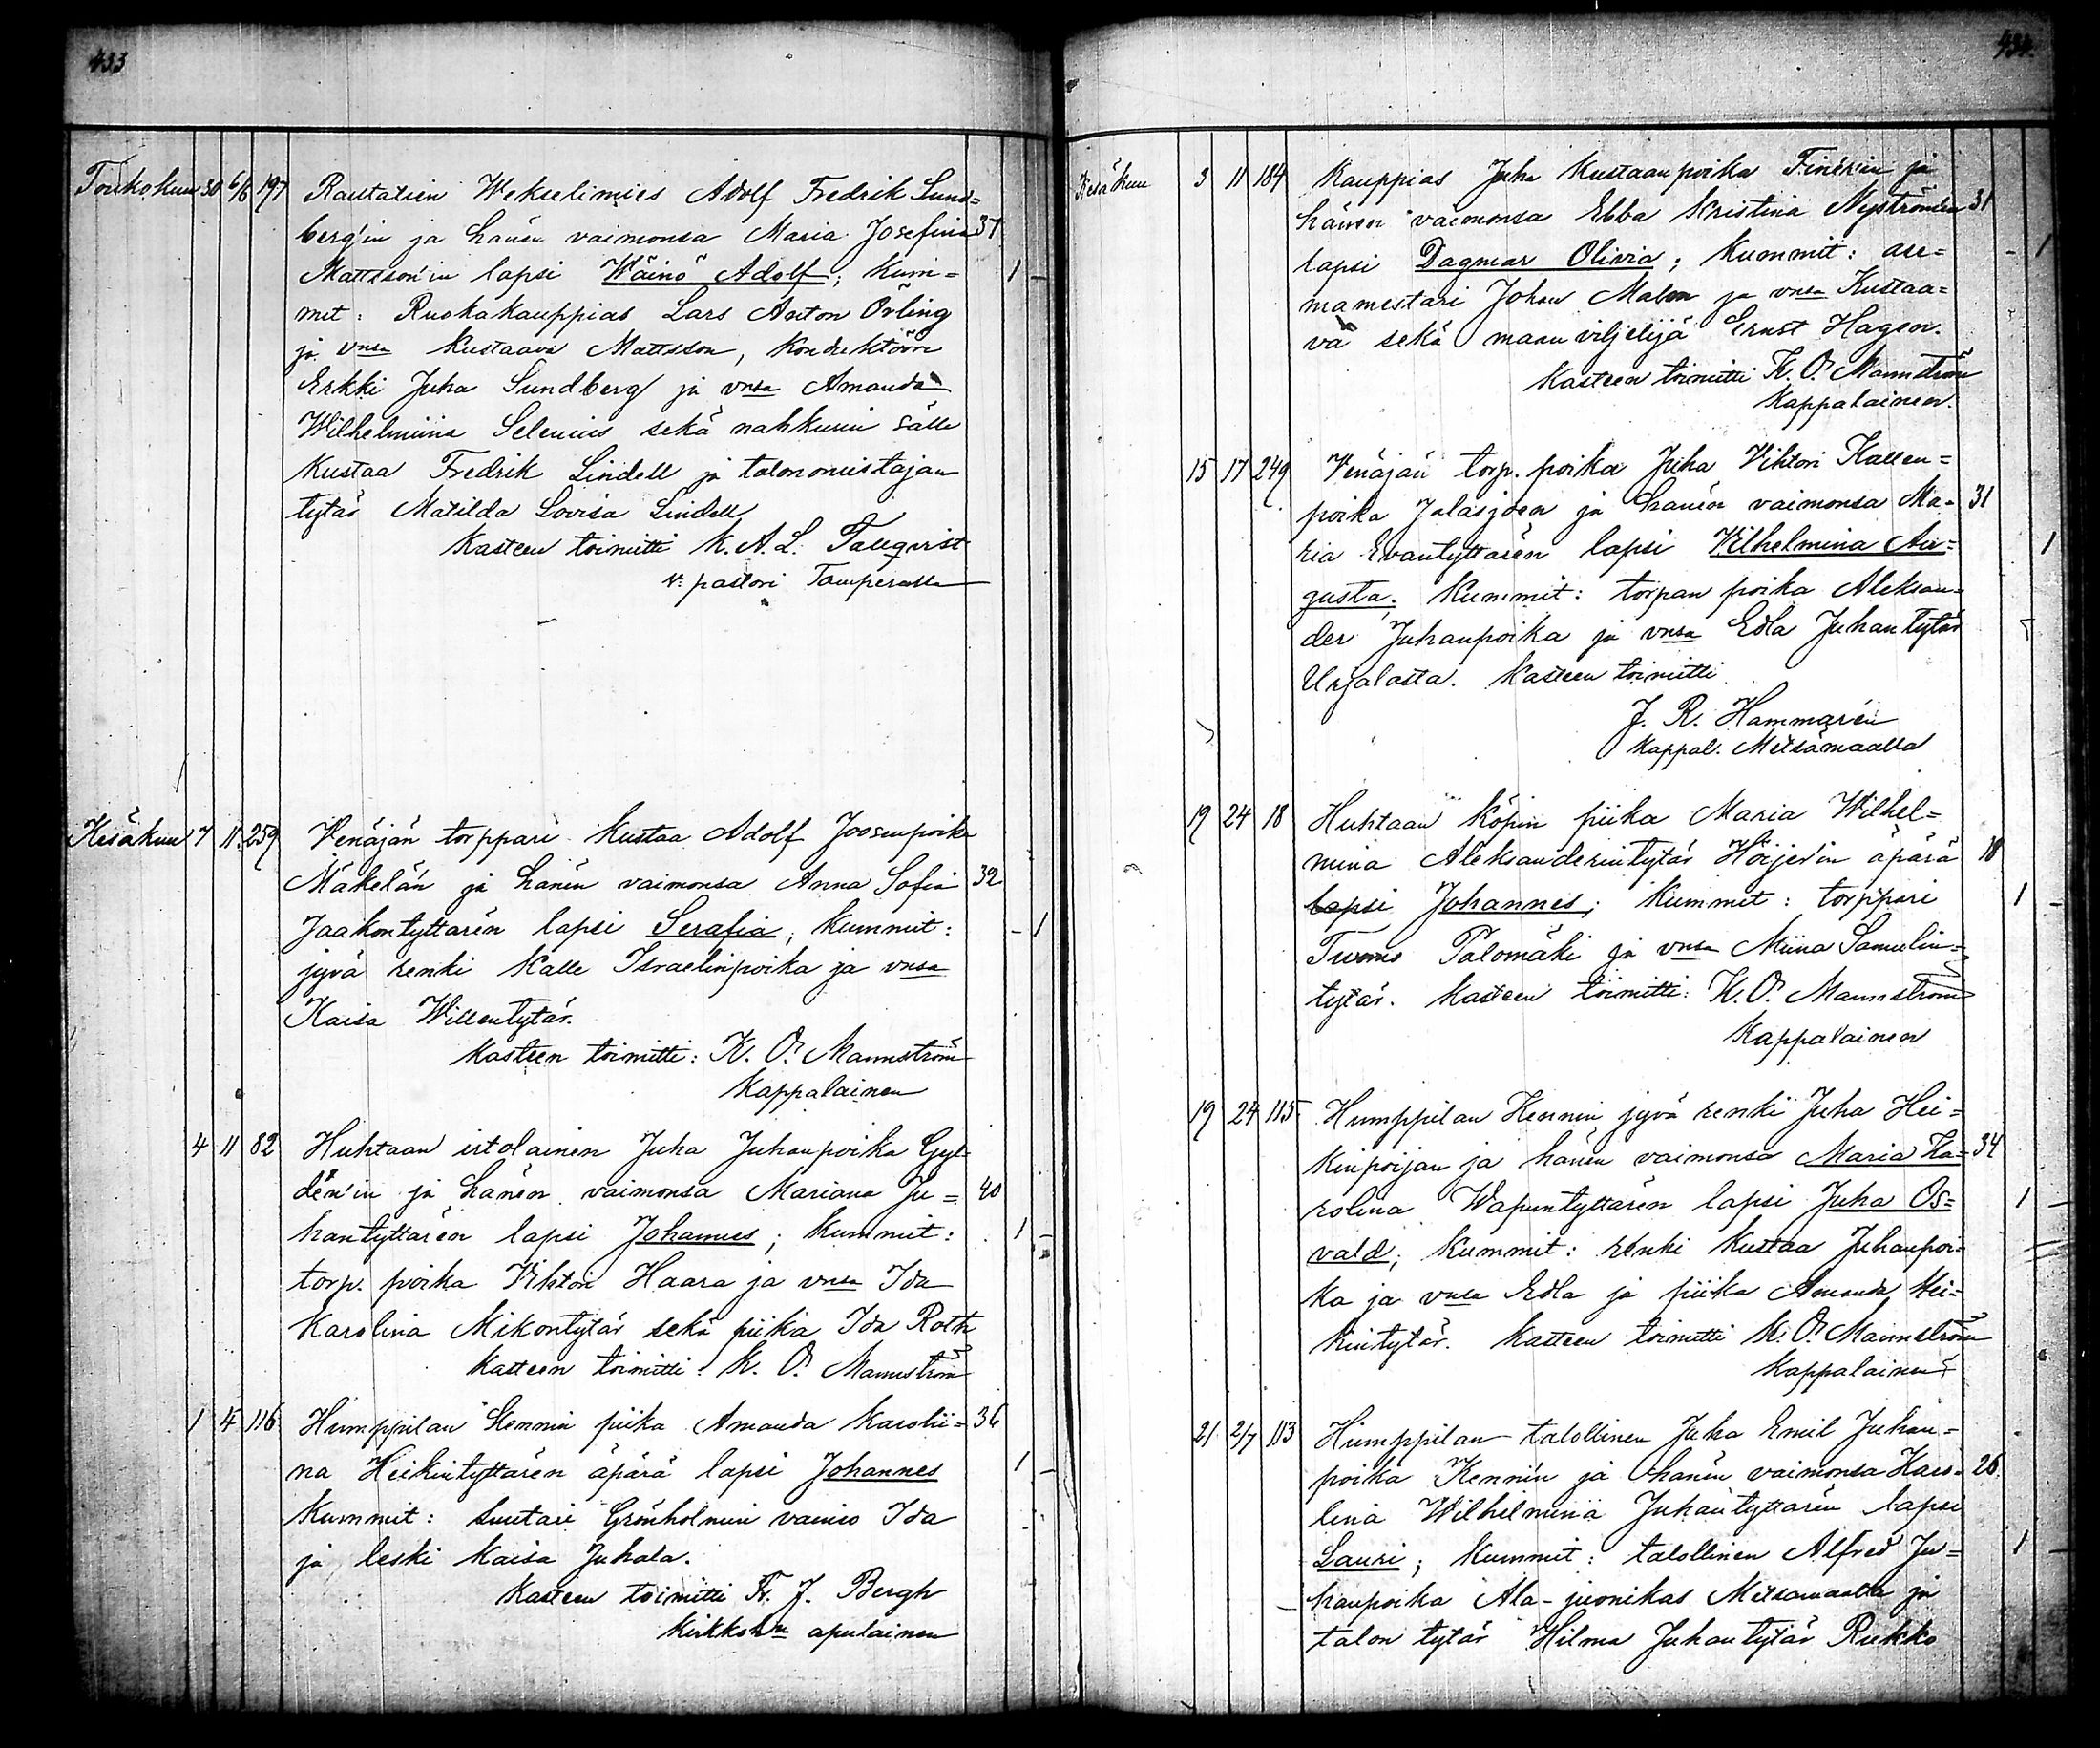 433
Toukokuu 30 6/6 197 Rautatien Wekselimies Adolf Fredrik Lund=
berg'in ja hänen vaimonsa Maria Josefina 37
Mattsson'in lapsi Wäinö Adolf; Kum= 1 -
mit: Ruokakauppias Lars Anton Örling
ja vnsa Kustaava Mattsson, Konduktööri
Erkki Juha Sundberg ja vnsa Amanda
Wilhelmiina Selenius sekä nahkurin sälli
Kustaa Fredrik Lindell ja talonomistajan
tytär Matilda Lovisa Lindell
Kasteen toimitti K. A. L. Tallqvist
v. pastori Tampereella
Kesäkuu 7 11 259 Venäjän torppari Kustaa Adolf Joosenpoika
Mäkelän ja hänen vaimonsa Anna Sofia 32
Jaakontyttären lapsi Serafia; Kummit: - 1
jyvä renki Kalle Israelinpoika ja vnsa
Kaisa Willentytär.
Kasteen toimitti: K. O. Mannström
Kappalainen
4 11 82 Huhtaan istolainen Juha Juhanpoika Gyl=
dén'in ja hänen vaimonsa Mariana Ju= 40
hantyttären lapsi Johannes; Kummit: 1 -
torp. poika Vihtori Haara ja vnsa Ida
Karolina Mikontytär sekä piika Ida Roth
Kasteen toimitti: K. O. Mannström
1 4 116 Humppilan Kennin piika Amanda Karolii= 36
na Heikintyttären äpärä lapsi Johannes 1 -
Kummit: Suutari Grönholmin vaimo Ida
ja leski Kaisa Juhala.
Kasteen toimitti Fr. J. Bergh
Kirkkoh:n apulainen
434.
Kesäkuu 3 11 184 Kauppias Juha Kustaanpoika Finér'in ja
hänen vaimonsa Ebba Kristina Nyströmin 31
lapsi Dagmar Olivia; Kummit: ase= - 1
mamestari Johan Malen ja vnsa Kustaa=
va sekä maanviljelijä Ernst Hagson.
Kasteen toimitti K. O. Mannström
Kappalainen.
15 17 249 Venäjän torp. poika Juha Vihtori Kallen=
poika Jalasjoen ja hänen vaimonsa Ma= 31
ria Evantyttären lapsi Vilhelmina Au= 1
gusta; Kummit: torpan poika Aleksan=
der Juhanpoika ja vnsa Edla Juhantytär
Urjalasta. Kasteen toimitti
J. R. Hammarén
Kappal. Metsämaalla
19 24 18 Huhtaan Köpin piika Maria Wilhel=
miina Aleksanderintytär Höijer'in äpärä 18
lapsi Johannes; Kummit: torppari 1 -
Tuomo Palomäki ja vnsa Miina Samulin=
tytär. Kasteen toimitti: K. O. Mannström
Kappalainen
19 24 115 Humppilan Kennin jyvä renki Juha Hei=
kinpoijan ja hänen vaimonsa Maria Ka= 34
rolina Wapuntyttären lapsi Juha Os= 1 -
vald; Kummit: renki Kustaa Juhanpoi=
ka ja vnsa Edla ja piika Amanda Hei=
kintytär. Kasteen toimitti K. O. Mannström
Kappalainen
21 2/7 113 Humppilan talollinen Juha Emil Juhan=
poika Kennin ja hänen vaimonsa Karo= 26
lina Wilhelmina Juhantyttären lapsi
Lauri; Kummit: talollinen Alfred Ju= 1 -
hanpoika Ala-juonikas Metsämaalta ja
talon tytär Hilma Juhantytär Riekko